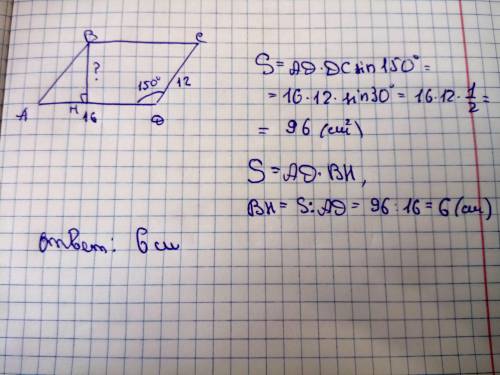 B C
?
150° 12
A H 16 D
S = AD · DC sin 150° =
= 16 · 12 · sin 30° = 16 · 12 · 1/2 =
= 96 (см²)
S = AD · BH,
BH = S : AD = 96 : 16 = 6 (см)
ответ: 6 см